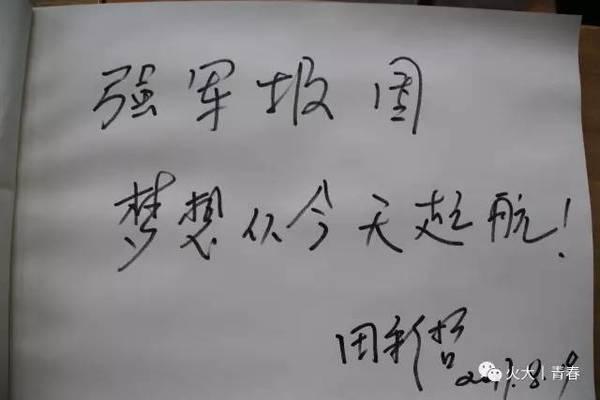 强军报国
梦想从今天起航！
田新哲
2017.8.9
火大｜青春